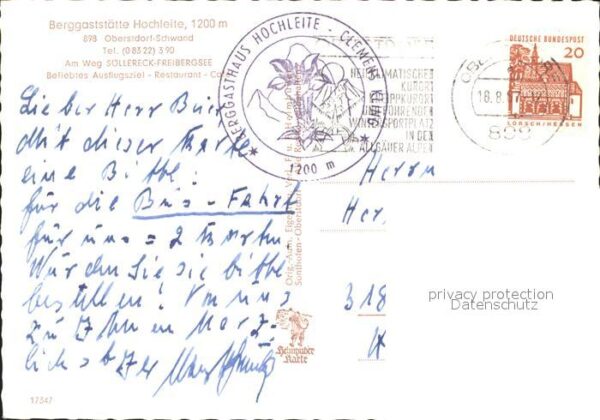 Berggaststätte Hochleite, 1200 m
898 Oberstdorf-Schwand
Tel. (0 83 22) 3 90
Am Weg SÖLLERECK-FREIBERGSEE
Beliebtes Ausflugsziel - Restaurant - Ca
BERGGASTHAUS HOCHLEITE - CLEMENS
1200 m
HEILKLIMATISCHER
KURORT
KNEIPPKURORT
UND FÜHRENDER
WINTERSPORTPLATZ
IN DEN
ALLGÄUER ALPEN
18.8.
DEUTSCHE BUNDESPOST
20
LORSCH/HESSEN
Lieber Herr
Mit dieser Karte
eine Bitte:
für die Bus-Fahrt
für uns = 2 Karten
Würden Sie sie bitte
bestellen! Von uns
zu Ihnen
Herrn
Her.
318
privacy protection
Datenschutz
Sonthofen-Oberstdorf
Heimhuber
Karte
17347